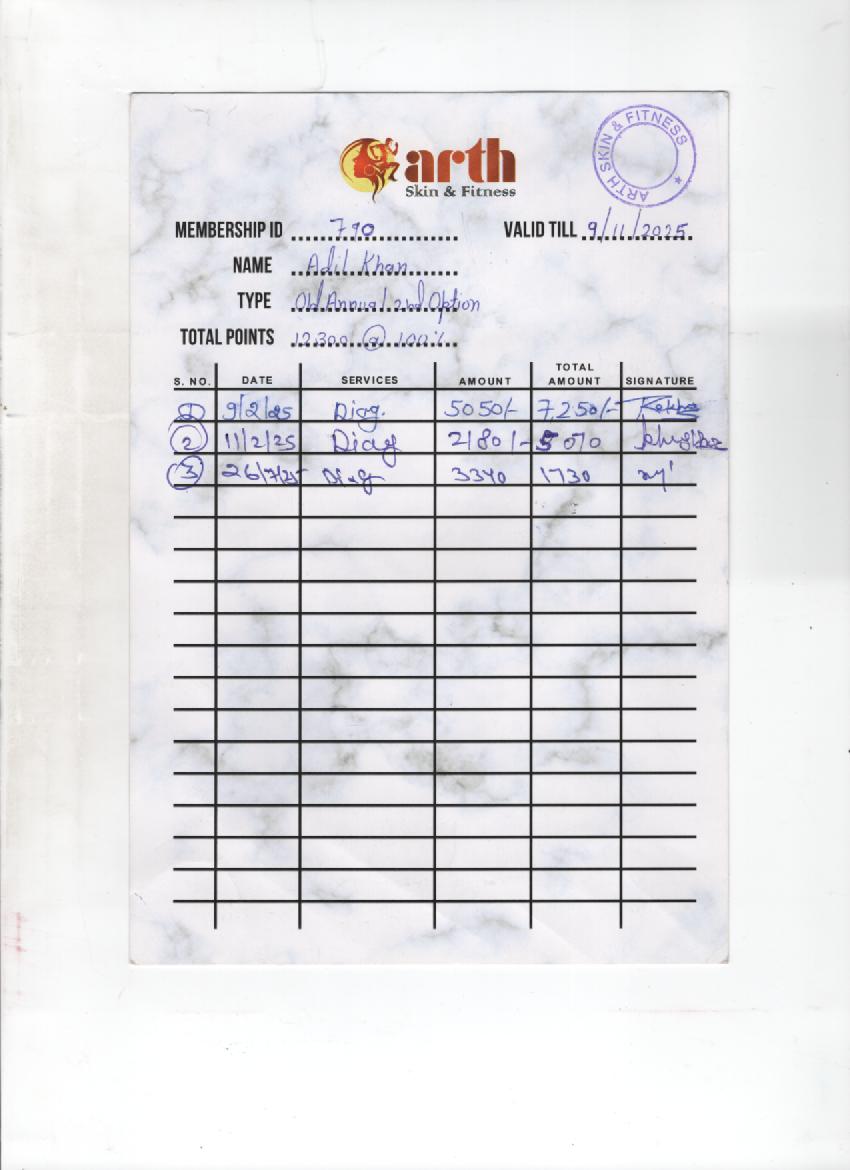 arth
Skin & Fitness
ARTH SKIN & FITNESS
MEMBERSHIP ID 790 VALID TILL 9/11/2025
NAME Adil Khan
TYPE Old Annual 2nd Option
TOTAL POINTS 12300 @ 100%
S. NO. DATE SERVICES AMOUNT TOTAL AMOUNT SIGNATURE
1 9/2/25 Diag. 5050/- 7250/-
2 11/2/25 Diag 2180/- 5070
3 26/7/25 Diag 3340 1730